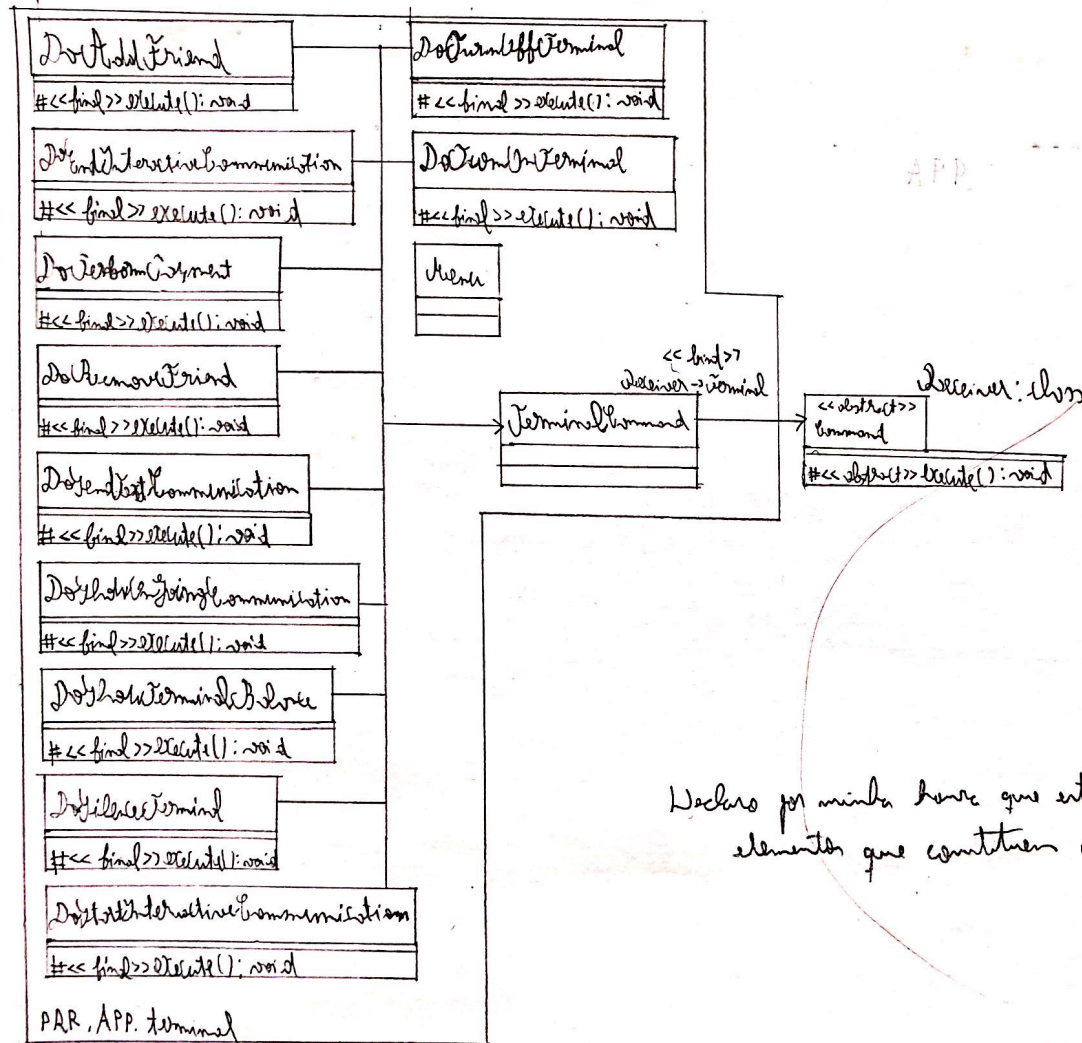 DoAddFriend
#<<final>>execute(): void
DoEndInteractiveCommunication
#<<final>>execute(): void
DoPerformPayment
#<<final>>execute(): void
DoRemoveFriend
#<<final>>execute(): void
DoSendTextCommunication
#<<final>>execute(): void
DoShowOnGoingCommunication
#<<final>>execute(): void
DoShowTerminalBalance
#<<final>>execute(): void
DoSilenceTerminal
#<<final>>execute(): void
DoStartInteractiveCommunication
#<<final>>execute(): void
DoTurnOffTerminal
#<<final>>execute(): void
DoTurnOnTerminal
#<<final>>execute(): void
Menu
TerminalCommand
<<bind>>
Receiver->Terminal
Receiver: class
<<abstract>>
Command
#<<abstract>>execute(): void
APP
Declaro por minha honra que
elementos que constituem
PRR.APP.terminal